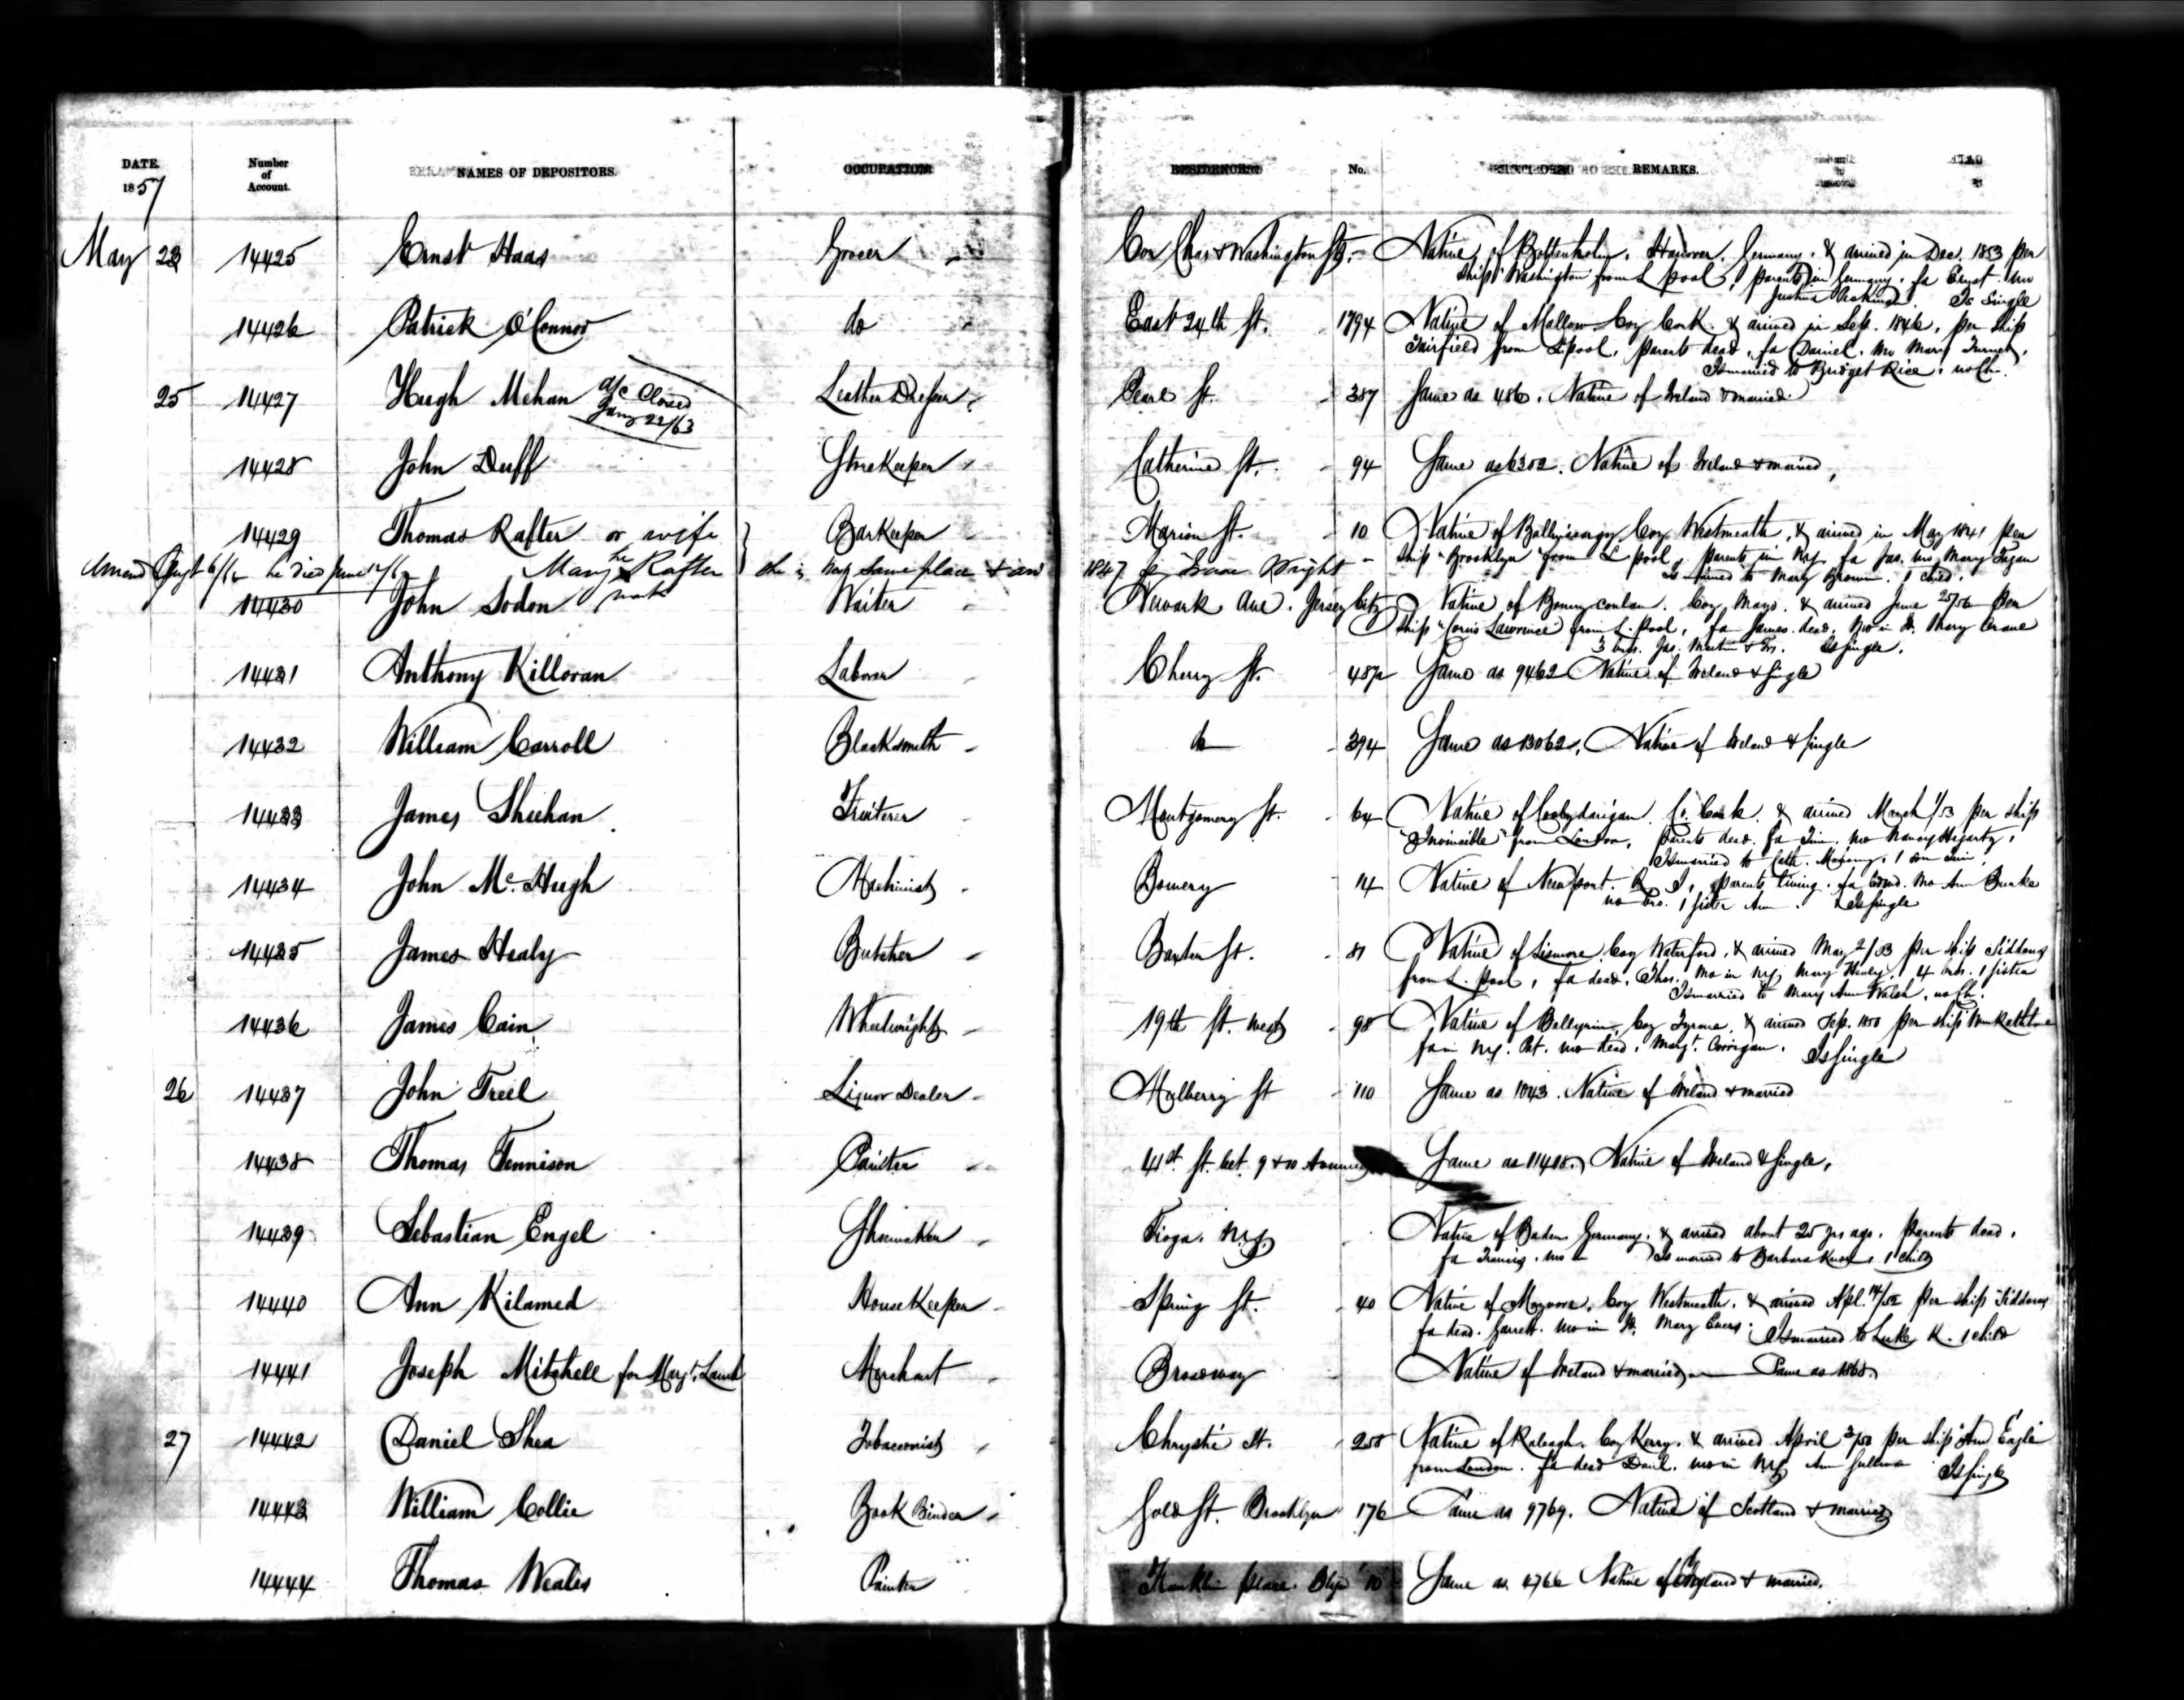 DATE. Number of Account. NAMES OF DEPOSITORS. OCCUPATION. RESIDENCE. No. REMARKS.
1857
May 23 14425 Ernst Haas Grocer Cor Chas & Washington Sts. Native of Hanover, Germany, & arrived in Dec. 1853 per
ship Washington from L pool, parents in Germany, fa Ernst. mo
Justina Is Single
14426 Patrick O'Connor do East 24th St. 179 Native of Mallow Coy Cork. & arrived in Sep. 1846, per ship
Fairfield from L.pool, parents dead, fa Daniel. mo Mary Turner,
Is married to Bridget Rice, no Ch.
25 14427 Hugh Mehan a/c Closed Leather Dresser Pearl St. 387 Same as 486. Native of Ireland & married
Jany 22/63
14428 John Duff StoreKeeper Catherine St. 94 Same as 6302. Native of Ireland & married,
14429 Thomas Rafter or wife BarKeeper Marion St. 10 Native of Coy Westmeath, & arrived in May 1841 per
ship "Brooklyn" from L pool, parents in NY. fa Jas. mo Mary Fagan
Is married to Mary Brown. 1 child.
he died June Mary her x Rafter she is same place & arr 1847 Isaac Wright
mark
14430 John Sodon Waiter Newark Ave. Jersey City Native of Bonny conlan. Coy Mayo. & arrived June 25/56 per
ship "Corns Lawrence" from L. Pool, fa James. dead. mo in Ir. Mary Crane
3 bros. Jas. Martin & Is single.
14431 Anthony Killoran Laborer Cherry St. 487 Same as 9462 Native of Ireland & Single
14432 William Carroll Blacksmith do 394 Same as 13062, Native of Ireland & Single
14433 James Sheehan Fruiterer Montgomery St. 64 Native of Co. Cork. & arrived March /53 per ship
"Invincible" from London, parents dead. fa Tim. mo Nancy Hegarty,
Is married to Cath. 1 son Tim
14434 John McHugh Machinist Bowery 14 Native of Newport. R I, parents living. fa Edmd. mo Ann Burke
no bro. 1 sister Ann. Is Single
14435 James Healy Butcher Baxter St. 81 Native of Lismore, Coy Waterford, & arrived May 2/53 per ship Siddons
from L. pool, fa dead. Thos. mo in NY, Mary Healy, 4 bros. 1 sister
Is married to Mary Ann Walsh, no Ch.
14436 James Cain Wheelwright 19th St. West 98 Native of Coy Tyrone, & arrived Sep. 1850 per ship
fa in NY. Pat. mo dead. Margt. Corrigan. Is Single
26 14437 John Freel Liquor Dealer Mulberry St 110 Same as 1043. Native of Ireland & married
14438 Thomas Tennison Painter 41st St. bet. 9 & 10 Avenues Same as 11418. Native of Ireland & Single,
14439 Sebastian Engel Shoemaker Tioga. N.Y. Native of Baden Germany. & arrived about 25 yrs ago. Parents dead,
fa Francis, mo Is married to Barbara 1 child
14440 Ann Kilamed HouseKeeper Spring St. 40 Native of Coy Westmeath, & arrived Apl. 14/52 per ship Siddons
fa dead. Garrett. mo in Ir. Mary Is married to Luke K. 1 child
14441 Joseph Mitchell for Margt. Lamb Merchant Broadway Native of Ireland & married Same as 1868.
27 14442 Daniel Shea Tobacconist Chrystie St. 250 Native of Coy Kerry. & arrived April per ship Amn Eagle
from London. fa dead Danl. mo in NY Ann Is Single
14443 William Collie Book Binder Gold St. Brooklyn 176 Same as 9769. Native of Scotland & married
14444 Thomas Weales Painter Franklin place. Bkyn 10 Same as 4766 Native of England & married.